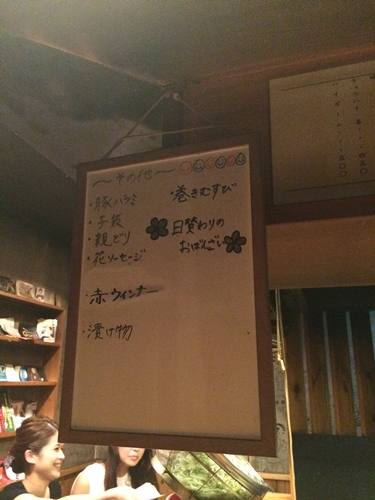 〜その他〜
・豚ハラミ
・子袋
・親どり
・花ソーセージ
・赤ウィンナー
・漬け物
・巻きむすび
日替わりの
おばんざい
ハイボール・・・